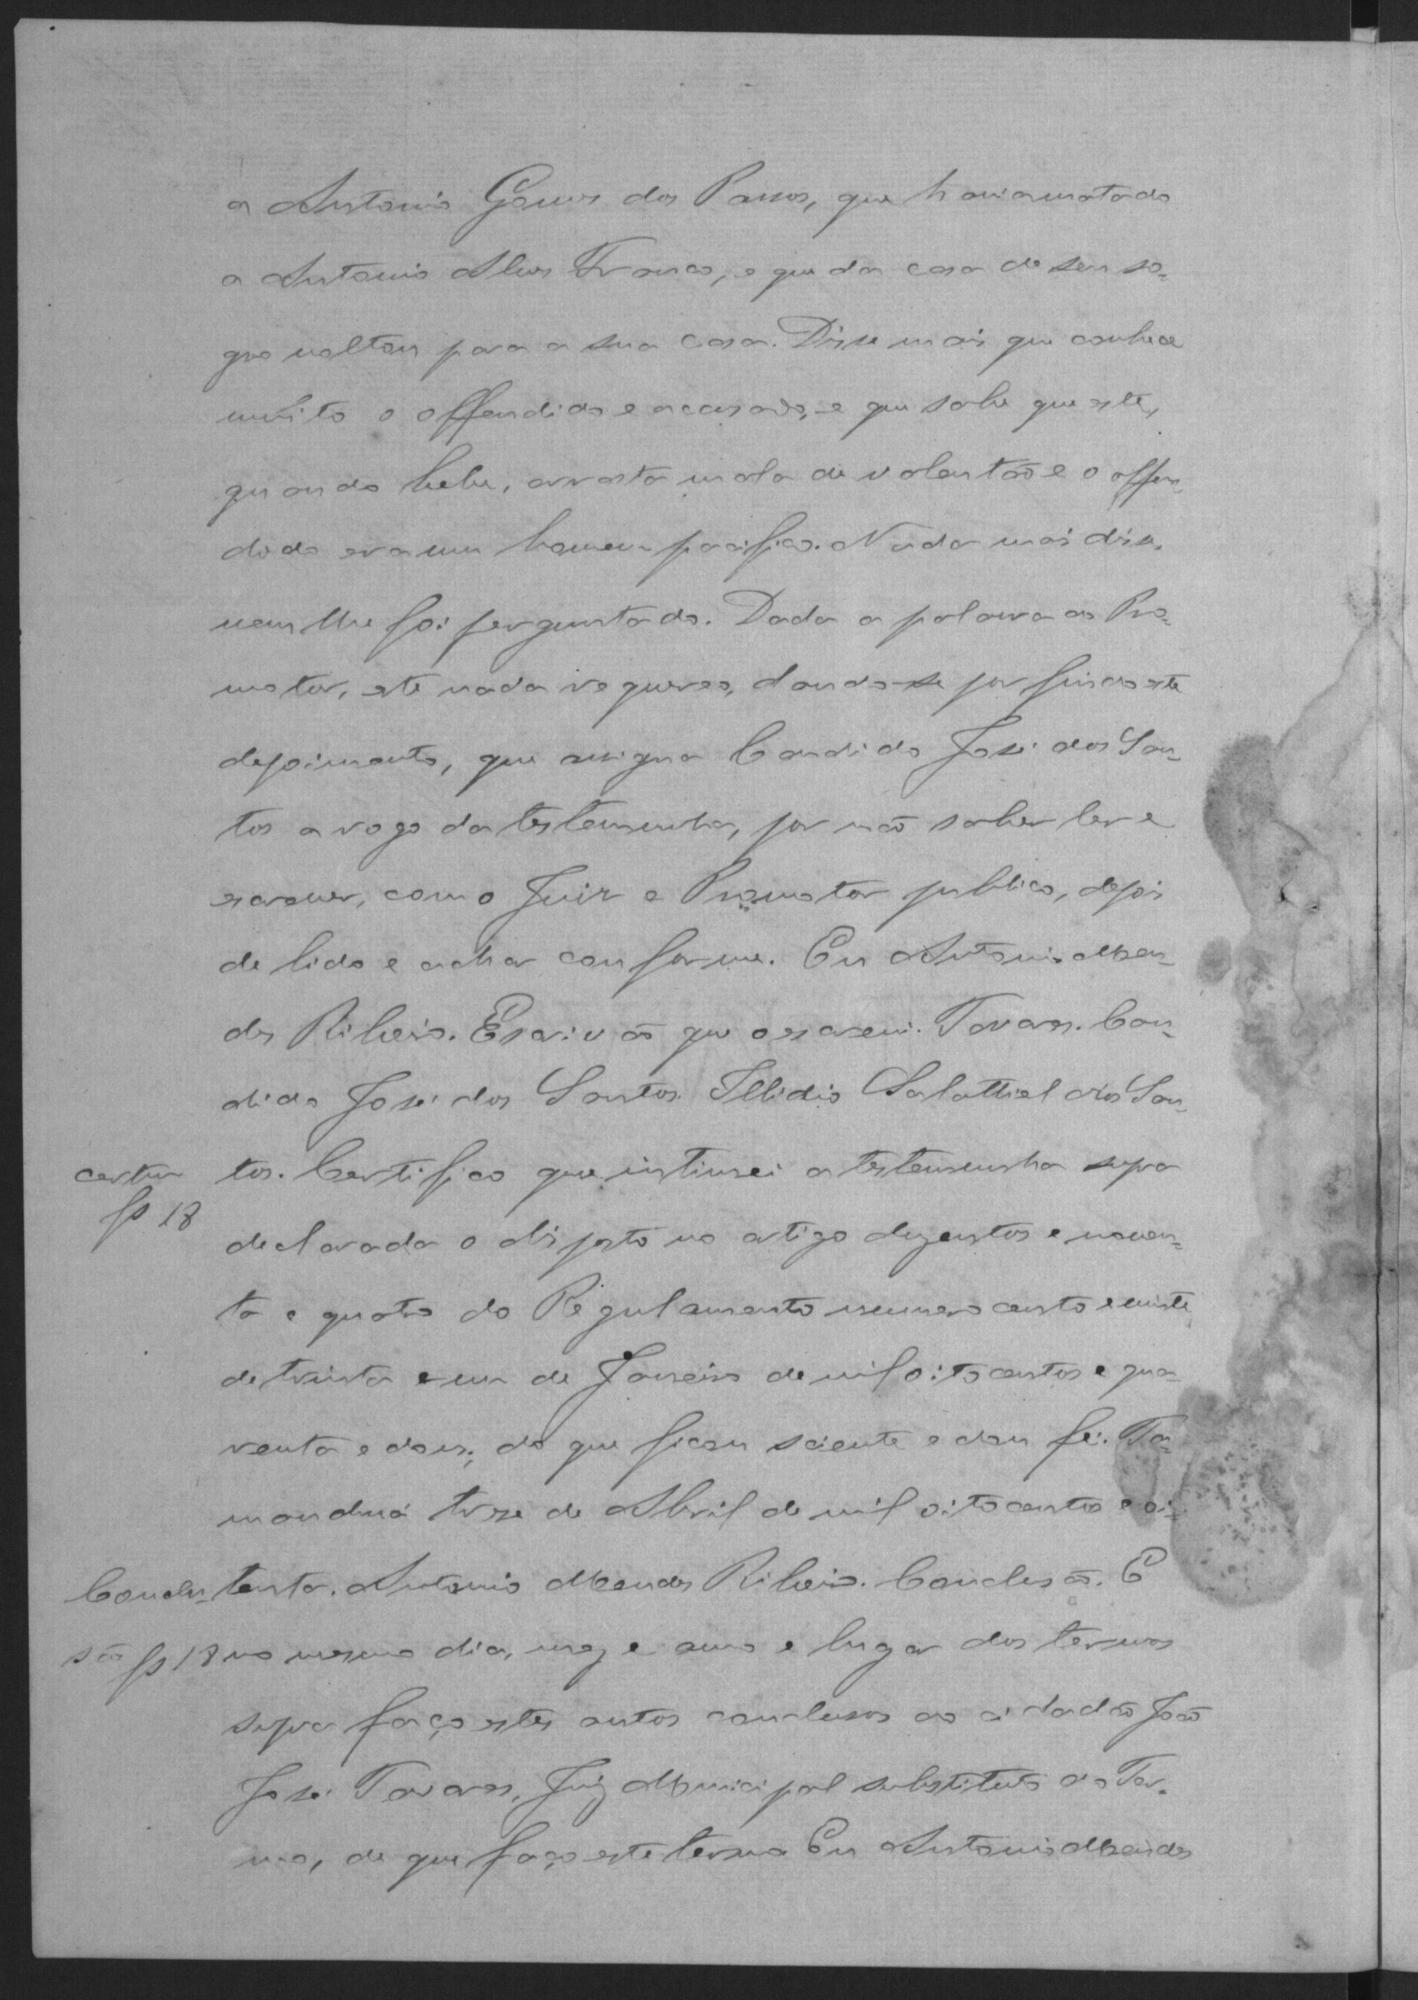 a Antonio Gomes dos Passos, que havia matado
a Antonio Alves Franco, e que da casa de seu so-
gro voltou para a sua casa. Disse mais que conhece
muito o offendido e accusado, e que sabe que este,
quando bebe, arrasta mala de valentão e o offen-
dido era um homem pacifico. Nada mais disse,
nem lhe foi perguntado. Dada a palavra ao Pro-
motor, este nada requereo, dando-se por findo este
depoimento, que assigna Candido José dos San-
tos a rogo da testemunha, por não saber ler e
escrever, com o Juiz e Promotor publico, depois
de lido e achar conforme. Eu Antonio Men-
des Ribeiro. Escrivão que o escrevi. Tavares. Can-
dido José dos Santos. Illidio Salathiel dos San-
tos. Certifico que intimei a testemunha supra
certam
fs 18
declarada o disposto no artigo duzentos e noven-
ta e quatro do Regulamento numero cento e vinte
de trinta e um de Janeiro de mil oitocentos e qua-
renta e dous; do que ficou sciente e dou fé. Ta-
manduá treze de Abril de mil oitocentos e oi-
tenta. Antonio Mendes Ribeiro. Conclusão. E
Conclu-
são fs 18
no mesmo dia, mez e anno e lugar dos termos
supra faço estes autos conclusos ao cidadão João
José Tavares, Juiz Municipal substituto do Ter-
mo, de que faço este termo Eu Antonio Mendes